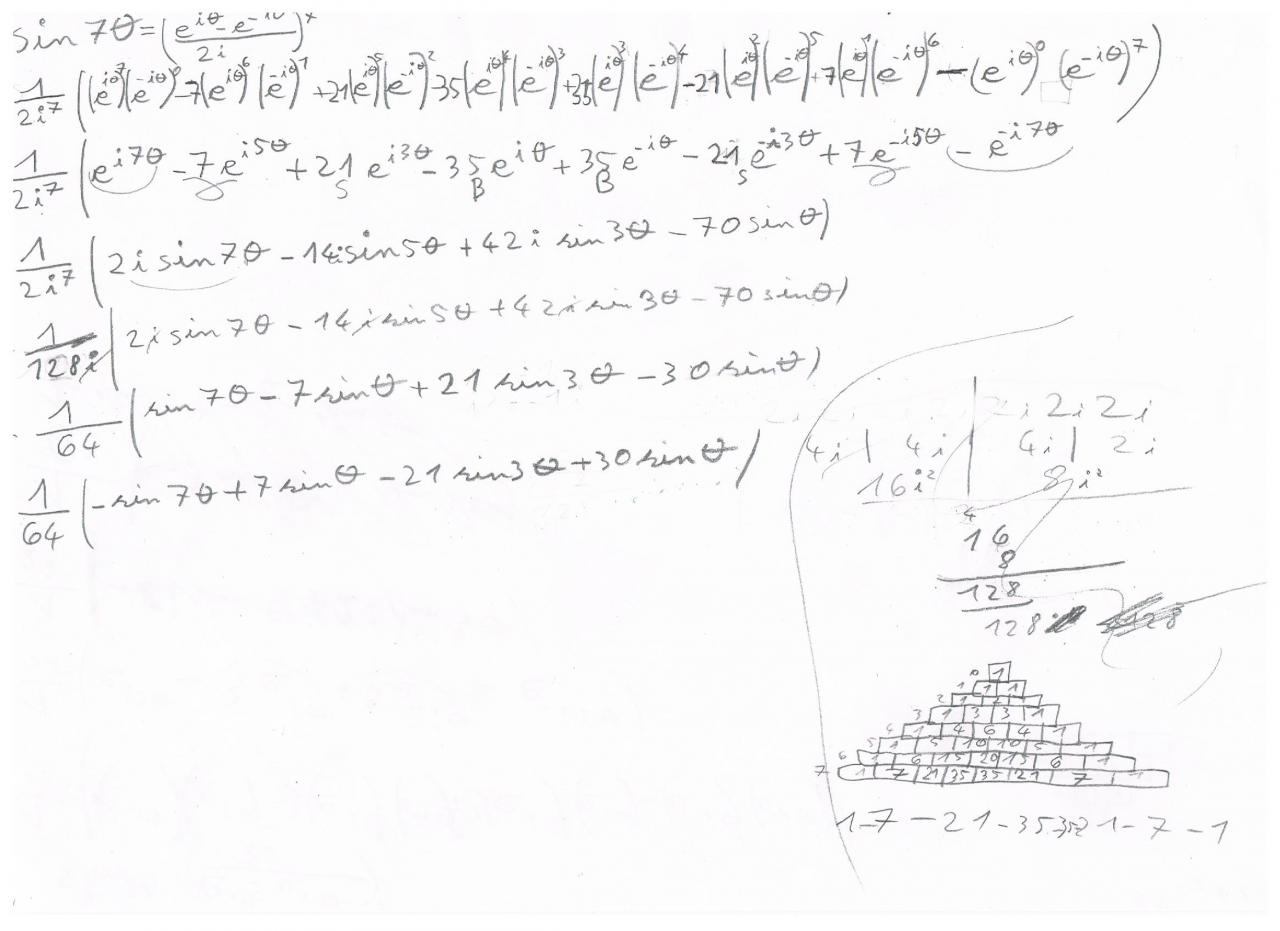 sin 7θ = (e^{iθ} - e^{-iθ} / 2i)^7
1/2i^7 ((e^{iθ})^7 (e^{-iθ})^0 - 7(e^{iθ})^6 (e^{-iθ})^1 + 21(e^{iθ})^5 (e^{-iθ})^2 - 35(e^{iθ})^4 (e^{-iθ})^3 + 35(e^{iθ})^3 (e^{-iθ})^4 - 21(e^{iθ})^2 (e^{-iθ})^5 + 7(e^{iθ})^1 (e^{-iθ})^6 - (e^{iθ})^0 (e^{-iθ})^7)
1/2i^7 (e^{i7θ} - 7e^{i5θ} + 21 e^{i3θ} - 35 e^{iθ} + 35 e^{-iθ} - 21 e^{-i3θ} + 7e^{-i5θ} - e^{-i7θ}
S B B S
1/2i^7 (2i sin7θ - 14i sin5θ + 42i sin3θ - 70 sinθ)
1/128i (2i sin 7θ - 14i sin 5θ + 42i sin 3θ - 70 sinθ)
1/64 (sin 7θ - 7 sinθ + 21 sin 3θ - 30 sinθ)
1/64 (-sin 7θ + 7 sinθ - 21 sin3θ + 30 sinθ)
2i 2i 2i
4i | 4i | 4i | 2i
16i² 8i²
4
16
8
128
128
128
0 1
1 1 1
2 1 2 1
3 1 3 3 1
4 1 4 6 4 1
5 1 5 10 10 5 1
6 1 6 15 20 15 6 1
7 1 7 21 35 35 21 7 1
1-7-21-35-35 21-7-1